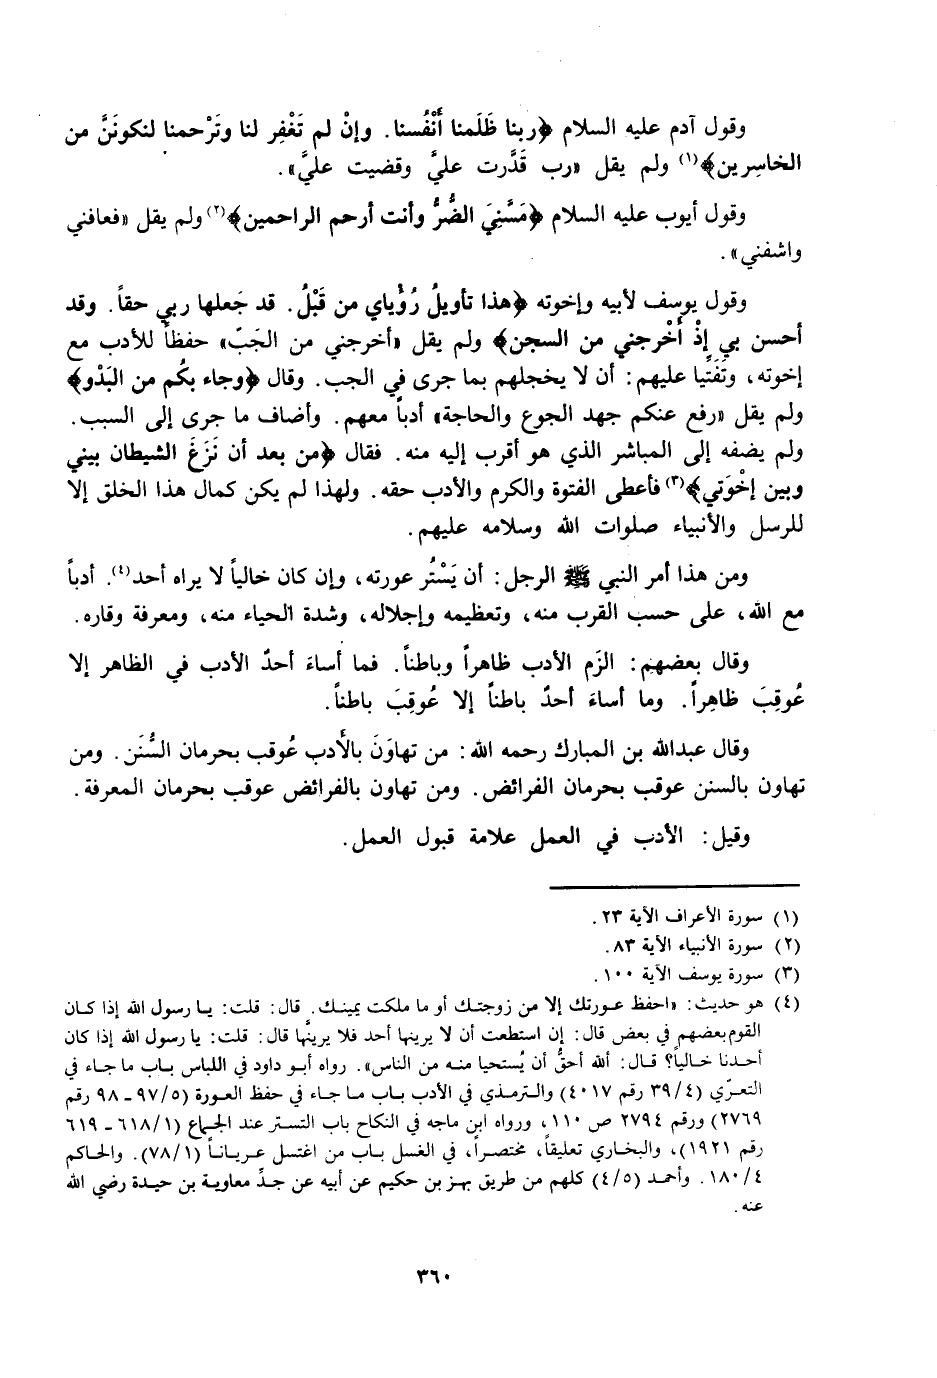 وقول آدم عليه السلام ﴿ربنا ظَلَمنا أَنْفُسنا. وإنْ لم تَغْفِر لنا وتَرْحمنا لنكونَنَّ من
الخاسِرين﴾(١) ولم يقل «رب قَدَّرت عليَّ وقضيت عليَّ».
وقول أيوب عليه السلام ﴿مَسَّنِيَ الضُّرُّ وأنت أرحم الراحمين﴾(٢) ولم يقل «فعافني
واشفني».
وقول يوسف لأبيه وإخوته ﴿هذا تأويلُ رُؤْياي من قَبْلُ. قد جَعلها ربي حقاً. وقد
أحسن بي إذْ أَخْرجني من السجن﴾ ولم يقل «أخرجني من الجَبّ» حفظاً للأدب مع
إخوته، وتَفَتِّيا عليهم: أن لا يخجلهم بما جرى في الجب. وقال ﴿وجاء بكُم من البَدْو﴾
ولم يقل «رفع عنكم جهد الجوع والحاجة» أدباً معهم. وأضاف ما جرى إلى السبب.
ولم يضفه إلى المباشر الذي هو أقرب إليه منه. فقال ﴿من بعد أن نَزَغَ الشيطان بيني
وبين إخْوَتي﴾(٣) فأعطى الفتوة والكرم والأدب حقه. ولهذا لم يكن كمال هذا الخلق إلا
للرسل والأنبياء صلوات الله وسلامه عليهم.
ومن هذا أمر النبي ﷺ الرجل: أن يَسْتُر عورته، وإن كان خالياً لا يراه أحد(٤). أدباً
مع الله، على حسب القرب منه، وتعظيمه وإجلاله، وشدة الحياء منه، ومعرفة وقاره.
وقال بعضهم: الزَم الأدب ظاهراً وباطناً. فما أساءَ أحدٌ الأدب في الظاهر إلا
عُوقِبَ ظاهِراً. وما أساءَ أحدٌ باطناً إلا عُوقِبَ باطناً.
وقال عبدالله بن المبارك رحمه الله: من تهاوَنَ بالأَدب عُوقب بحرمان السُّنَن. ومن
تهاون بالسنن عوقب بحرمان الفرائض. ومن تهاون بالفرائض عوقب بحرمان المعرفة.
وقيل: الأدب في العمل علامة قبول العمل.
(١) سورة الأعراف الآية ٢٣.
(٢) سورة الأنبياء الآية ٨٣.
(٣) سورة يوسف الآية ١٠٠.
(٤) هو حديث: «احفظ عورتك إلا من زوجتك أو ما ملكت يمينك. قال: قلت: يا رسول الله إذا كان
القوم بعضهم في بعض قال: إن استطعت أن لا يرينها أحد فلا يرينَّها قال: قلت: يا رسول الله إذا كان
أحدنا خالياً؟ قال: ألله أحقُّ أن يُستحيا منه من الناس». رواه أبو داود في اللباس باب ما جاء في
التعرّي (٣٩/٤ رقم ٤٠١٧) والترمذي في الأدب باب ما جاء في حفظ العورة (٩٧/٥ - ٩٨ رقم
٢٧٦٩) ورقم ٢٧٩٤ ص ١١٠، ورواه ابن ماجه في النكاح باب التستر عند الجماع (٦١٨/١ - ٦١٩
رقم ١٩٢١)، والبخاري تعليقاً، مختصراً، في الغسل باب من اغتسل عرياناً (٧٨/١). والحاكم
١٨٠/٤. وأحمد (٤/٥) كلهم من طريق بهز بن حكيم عن أبيه عن جدِّ معاوية بن حيدة رضي الله
عنه.
٣٦٠